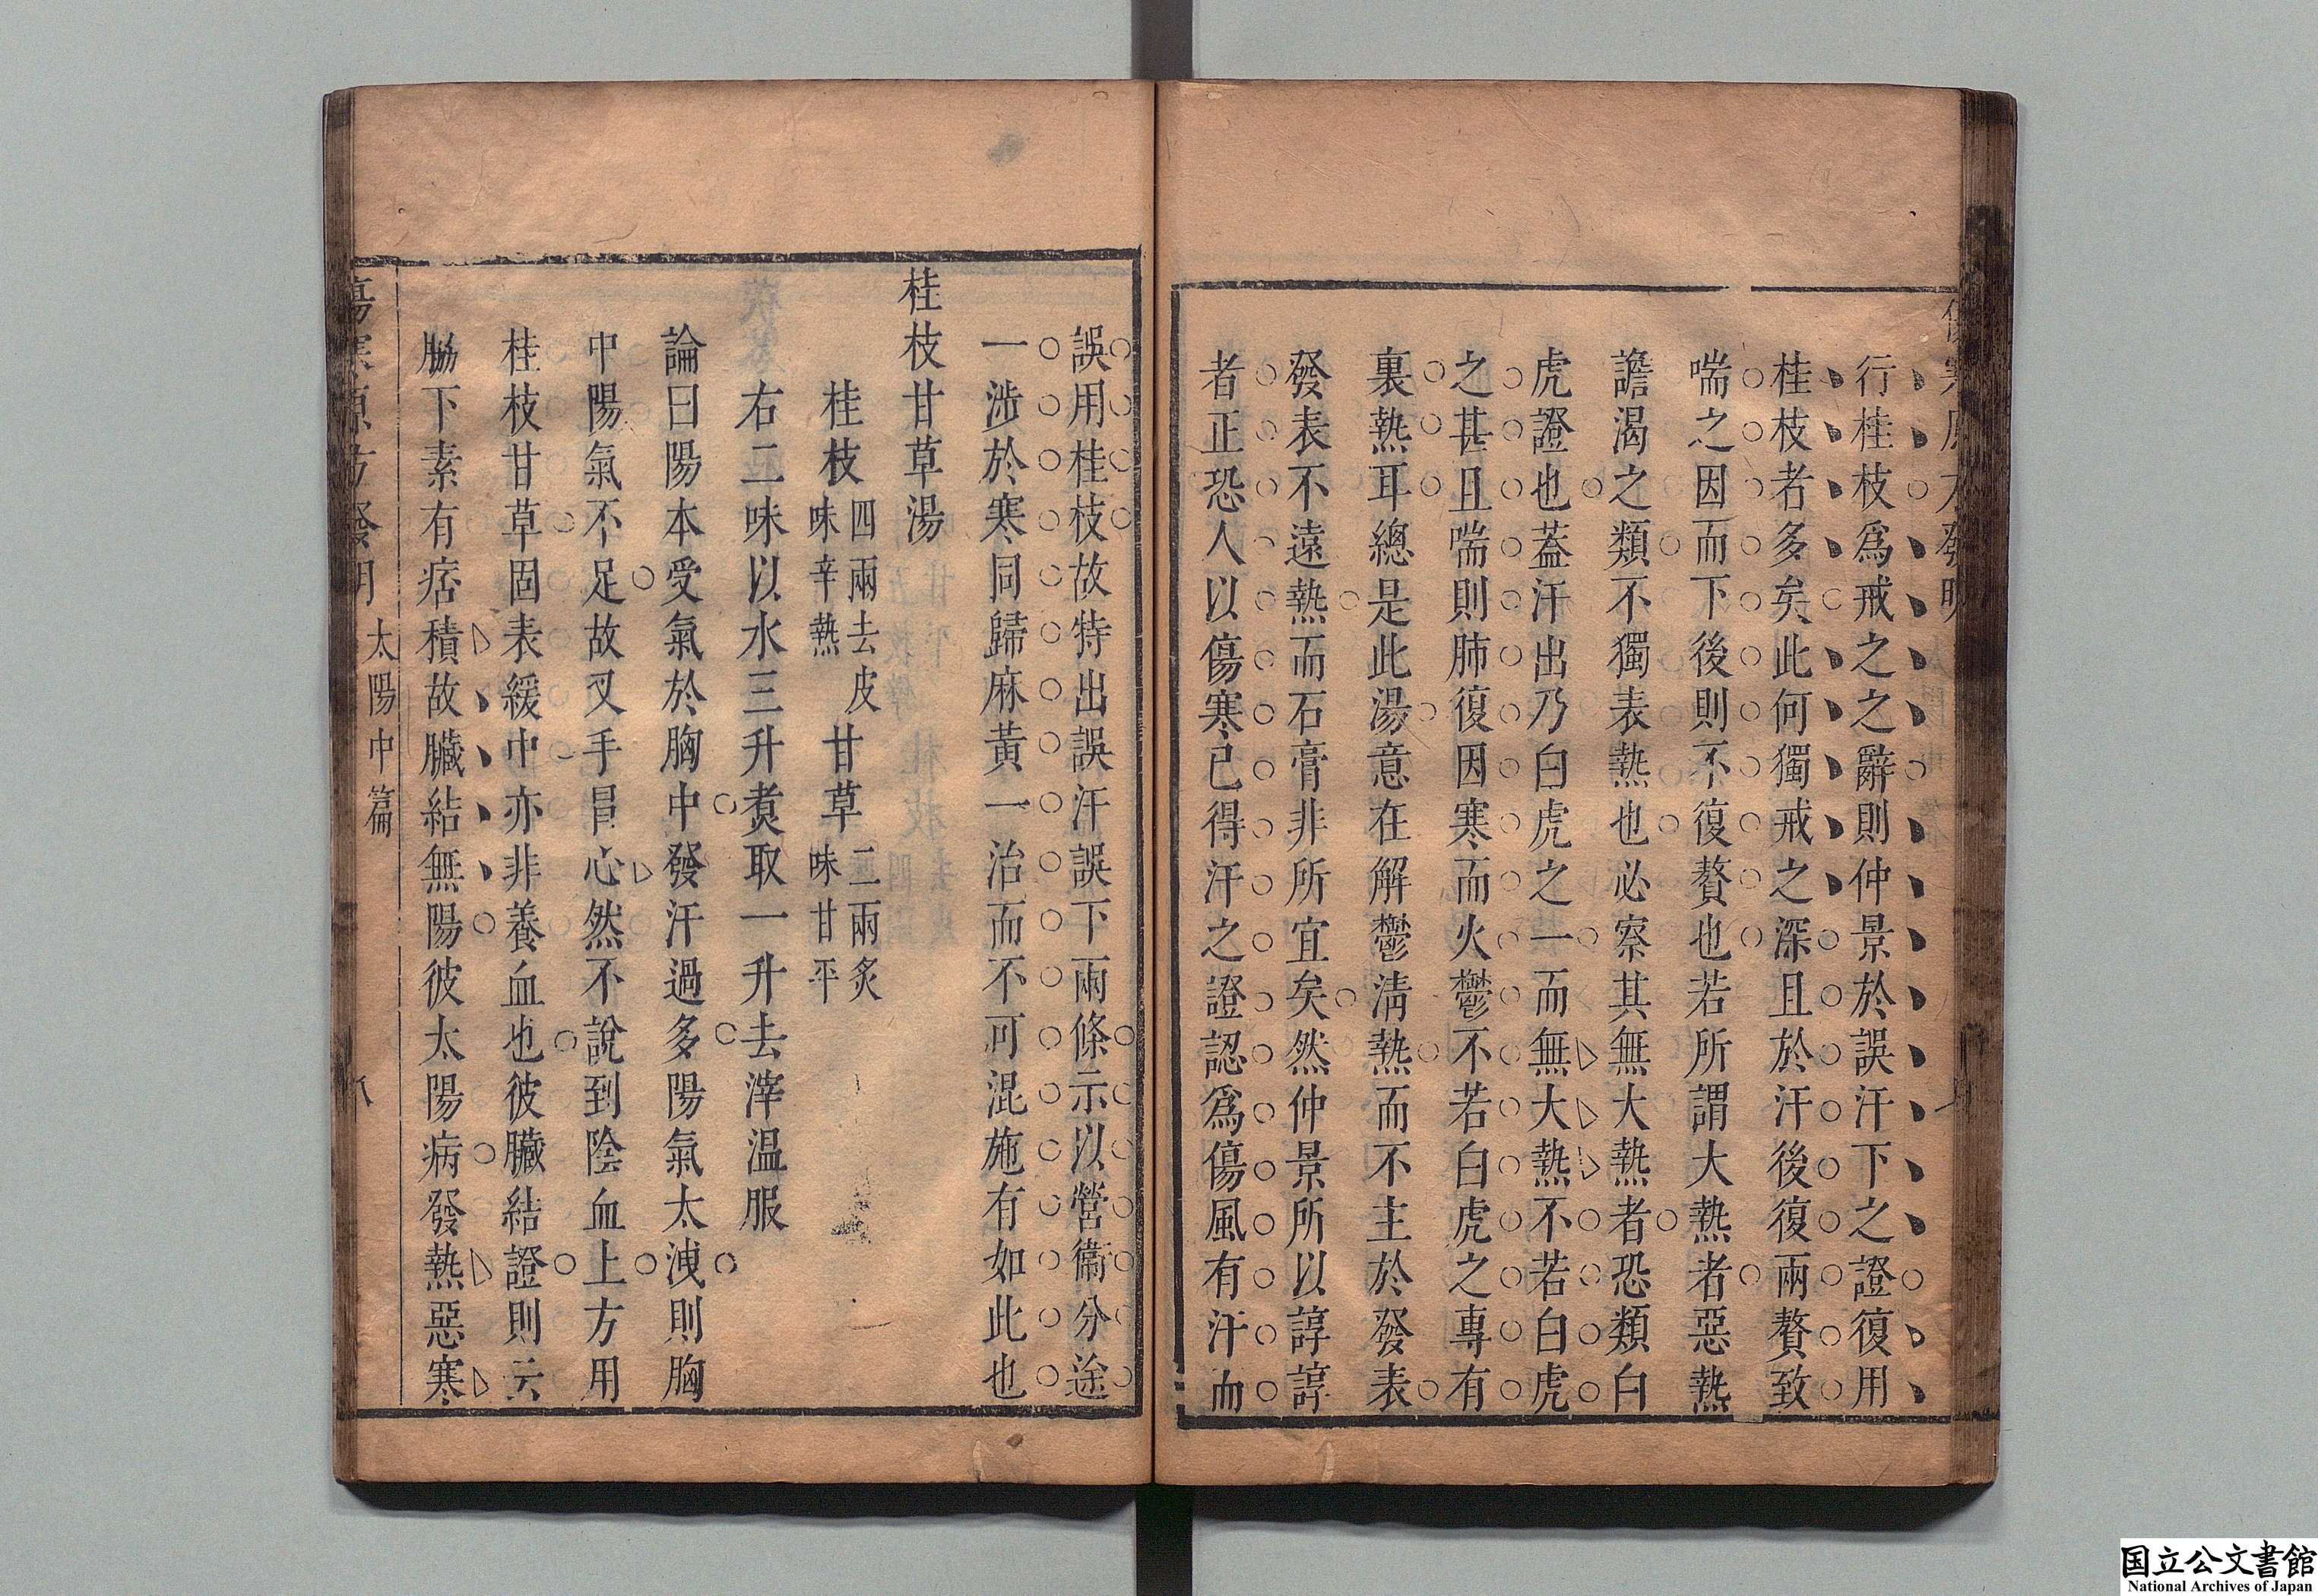 行桂枝爲戒之之辭則仲景於誤汗下之證復用
桂枝者多矣此何獨戒之深且於汗後復兩贅致
喘之因而下後則不復贅也若所謂大熱者惡熱
譫渴之類不獨表熱也必察其無大熱者恐類白
虎證也蓋汗出乃白虎之一而無大熱不若白虎
之甚且喘則肺復因寒而火鬱不若白虎之專有
裏熱耳總是此湯意在解鬱淸熱而不主於發表
發表不遠熱而石膏非所宜矣然仲景所以諄諄
者正恐人以傷寒已得汗之證認爲傷風有汗而
誤用桂枝故特出誤汗誤下兩條示以營衞分途
一涉於寒同歸麻黃一治而不可混施有如此也
桂枝甘草湯
桂枝 四兩去皮 味辛熱 甘草 二兩炙 味甘平
右二味以水三升煑取一升去滓温服
論曰陽本受氣於胸中發汗過多陽氣太洩則胸
中陽氣不足故叉手冒心然不說到陰血上方用
桂枝甘草固表緩中亦非養血也彼臟結證則云
脇下素有痞積故臟結無陽彼太陽病發熱惡寒
傷寒原方發明 太陽中篇 八
国立公文書館
National Archives of Japan